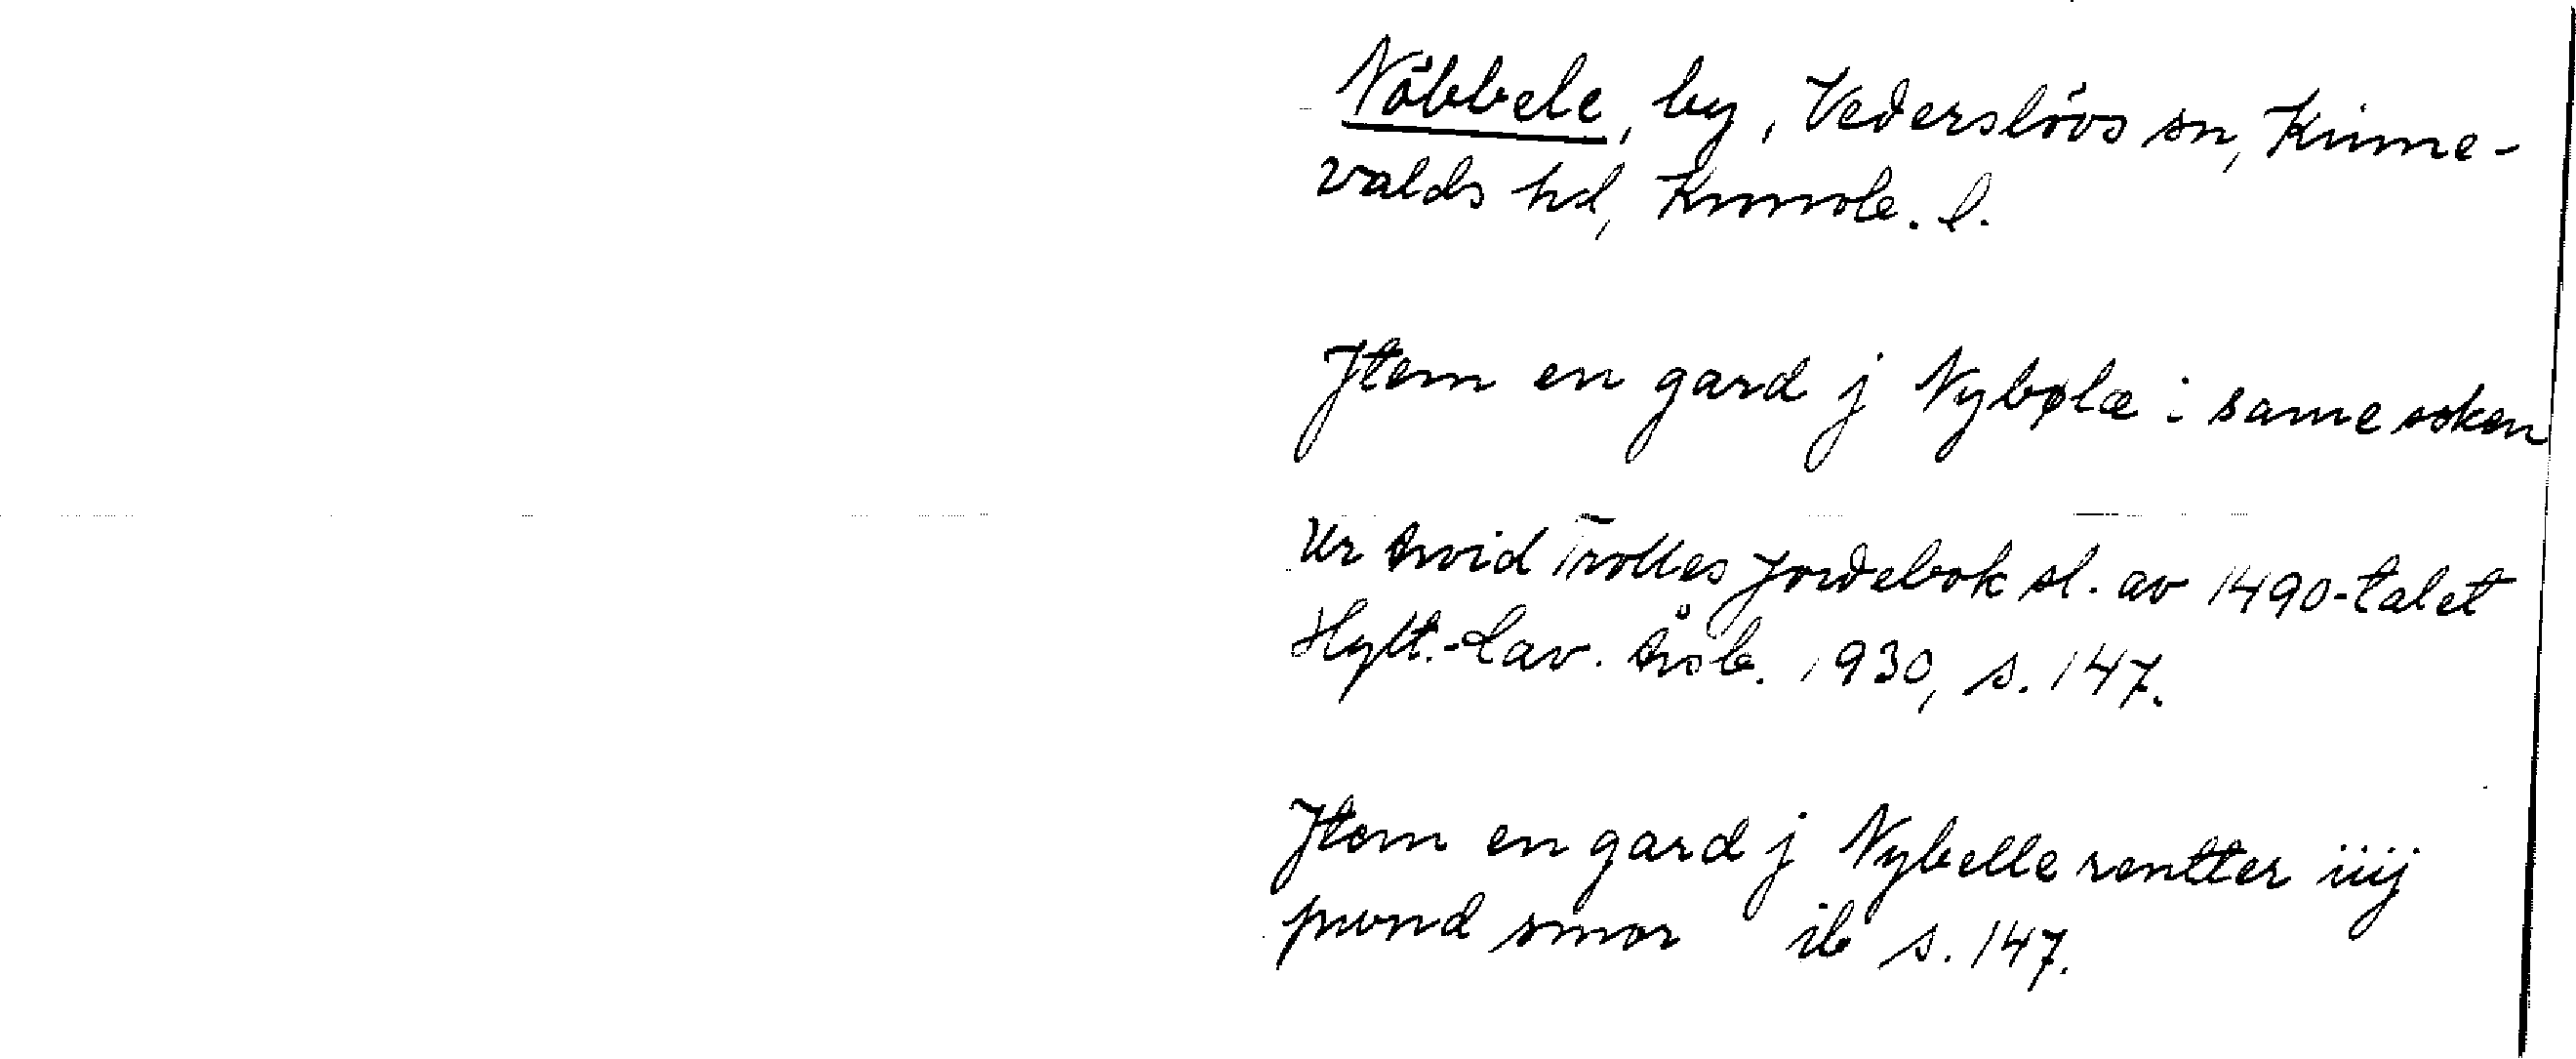 Nöbbele, by, Vederslövs sn, Kinne-
valds hd, Kronob. l.
Jtem en gard j Nybølæ i same soken
Ur Arvid Trolles Jordebok sl. av 1490-talet
Hylt.-Cav. Årsb. 1930, s. 147.
Jtem en gard j Nybelle rentter iiij
pund smor ib s. 147.